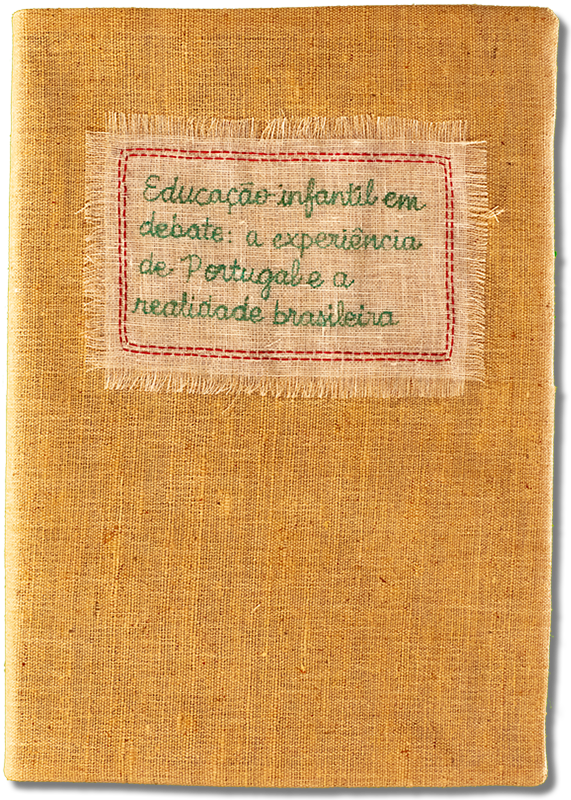 Educação infantil em
debate: a experiência
de Portugal e a
realidade brasileira